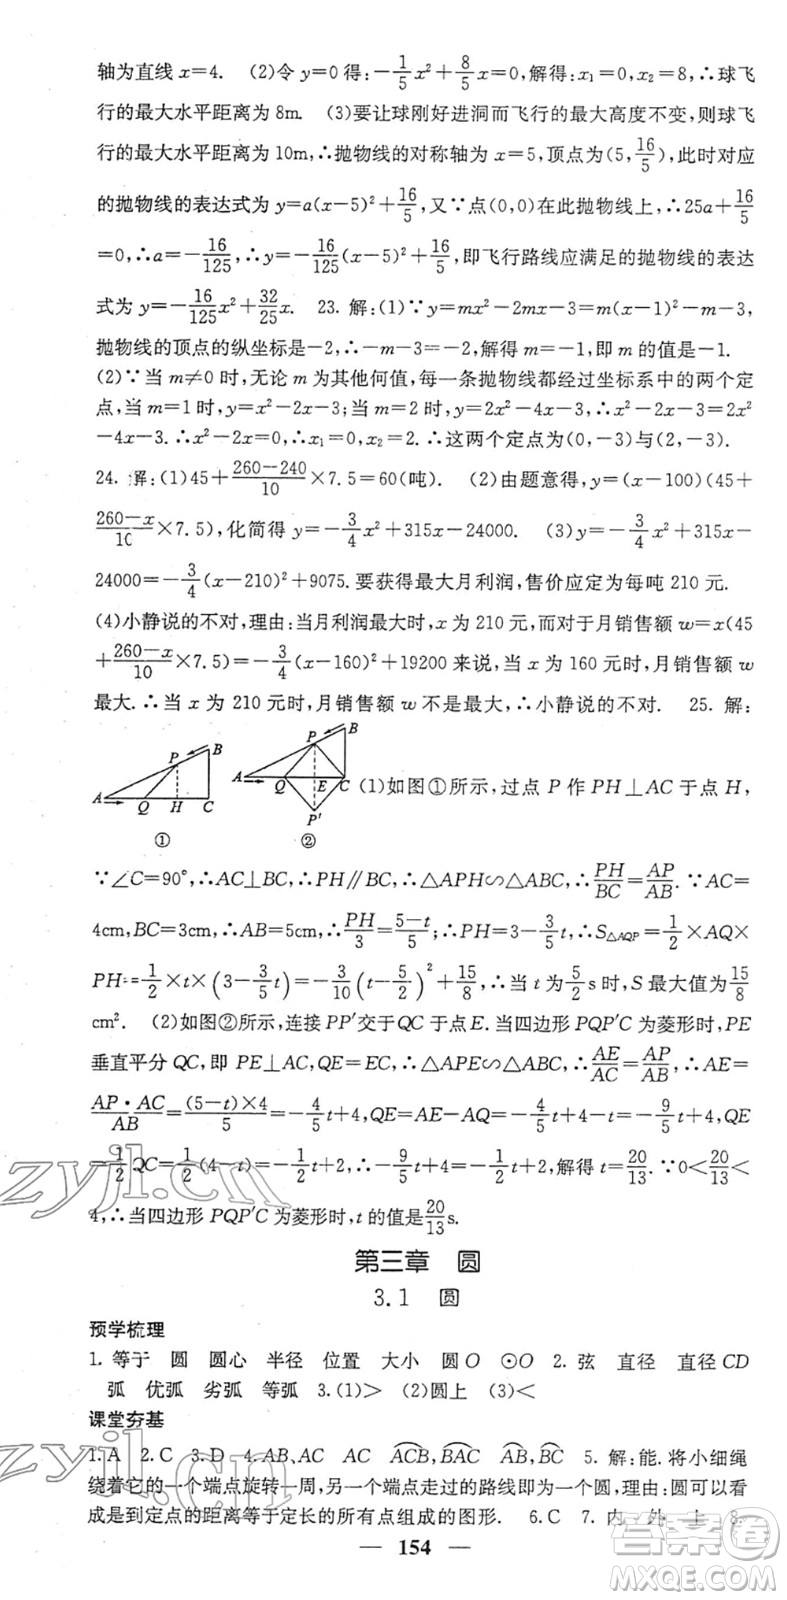 轴为直线 x=4. (2)令 y=0 得：-1/5x²+8/5x=0,解得：x₁=0,x₂=8,∴球飞
行的最大水平距离为 8m. (3)要让球刚好进洞而飞行的最大高度不变,则球飞
行的最大水平距离为 10m,∴抛物线的对称轴为 x=5,顶点为(5,16/5),此时对应
的抛物线的表达式为 y=a(x-5)²+16/5,又∵点(0,0)在此抛物线上,∴25a+16/5
=0,∴a=-16/125,∴y=-16/125(x-5)²+16/5,即飞行路线应满足的抛物线的表达
式为 y=-16/125x²+32/25x. 23. 解：(1)∵y=mx²-2mx-3=m(x-1)²-m-3,
抛物线的顶点的纵坐标是-2,∴-m-3=-2,解得 m=-1,即 m 的值是-1.
(2)∵当 m≠0 时,无论 m 为其他何值,每一条抛物线都经过坐标系中的两个定
点,当 m=1 时,y=x²-2x-3;当 m=2 时,y=2x²-4x-3,∴x²-2x-3=2x²
-4x-3.∴x²-2x=0,∴x₁=0,x₂=2.∴这两个定点为(0,-3)与(2,-3).
24. 解：(1)45+(260-240)/10×7.5=60(吨). (2)由题意得,y=(x-100)(45+
(260-x)/10×7.5),化简得 y=-3/4x²+315x-24000. (3)y=-3/4x²+315x-
24000=-3/4(x-210)²+9075.要获得最大月利润,售价应定为每吨 210 元.
(4)小静说的不对,理由：当月利润最大时,x 为 210 元,而对于月销售额 w=x(45
+(260-x)/10×7.5)=-3/4(x-160)²+19200 来说,当 x 为 160 元时,月销售额 w
最大.∴当 x 为 210 元时,月销售额 w 不是最大,∴小静说的不对. 25. 解：
A Q H C P B ①
A Q E C P B P′ ②
(1)如图①所示,过点 P 作 PH⊥AC 于点 H,
∵∠C=90°,∴AC⊥BC,∴PH∥BC,∴△APH∽△ABC,∴PH/BC=AP/AB.∵AC=
4cm,BC=3cm,∴AB=5cm,∴PH/3=(5-t)/5;∴PH=3-3/5t,∴S△AQP=1/2×AQ×
PH=1/2×t×(3-3/5t)=-3/10(t-5/2)²+15/8,∴当 t 为5/2s 时,S 最大值为15/8
cm². (2)如图②所示,连接 PP′交于 QC 于点 E.当四边形 PQP′C 为菱形时,PE
垂直平分 QC,即 PE⊥AC,QE=EC,∴△APE∽△ABC,∴AE/AC=AP/AB,∴AE=
AP·AC/AB=(5-t)×4/5=-4/5t+4,QE=AE-AQ=-4/5t+4-t=-9/5t+4,QE
=1/2QC=1/2(4-t)=-1/2t+2,∴-9/5t+4=-1/2t+2,解得 t=20/13.∵0<20/13<
4,∴当四边形 PQP′C 为菱形时,t 的值是20/13s.
第三章 圆
3.1 圆
预学梳理
1. 等于 圆 圆心 半径 位置 大小 圆O ⊙O 2. 弦 直径 直径 CD
弧 优弧 劣弧 等弧 3.(1)> (2)圆上 (3)<
课堂夯基
1.A 2.C 3.D 4.AB,AC AC ACB,BAC AB,BC 5. 解：能. 将小细绳
绕着它的一个端点旋转一周,另一个端点走过的路线即为一个圆,理由：圆可以看
成是到定点的距离等于定长的所有点组成的图形. 6.C 7. 内 外 上 8.
— 154 —
zyjl.cn
zyjl.cn
答案圈
MXQE.COM